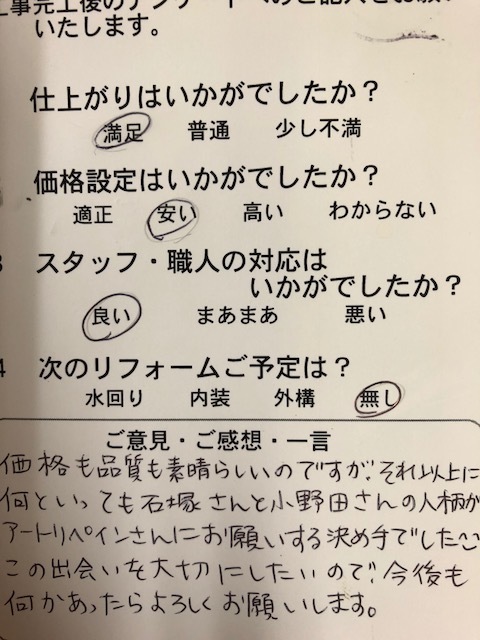 工事完工後のアンケートへのご記入をお願い
いたします。
仕上がりはいかがでしたか？
満足 普通 少し不満
価格設定はいかがでしたか？
適正 安い 高い わからない
3 スタッフ・職人の対応は
いかがでしたか？
良い まあまあ 悪い
4 次のリフォームご予定は？
水回り 内装 外構 無し
ご意見・ご感想・一言
価格も品質も素晴らしいのですが、それ以上に
何といっても石塚さんと小野田さんの人柄が
アートリペインさんにお願いする決め手でした
この出会いを大切にしたいので、今後も
何かあったらよろしくお願いします。